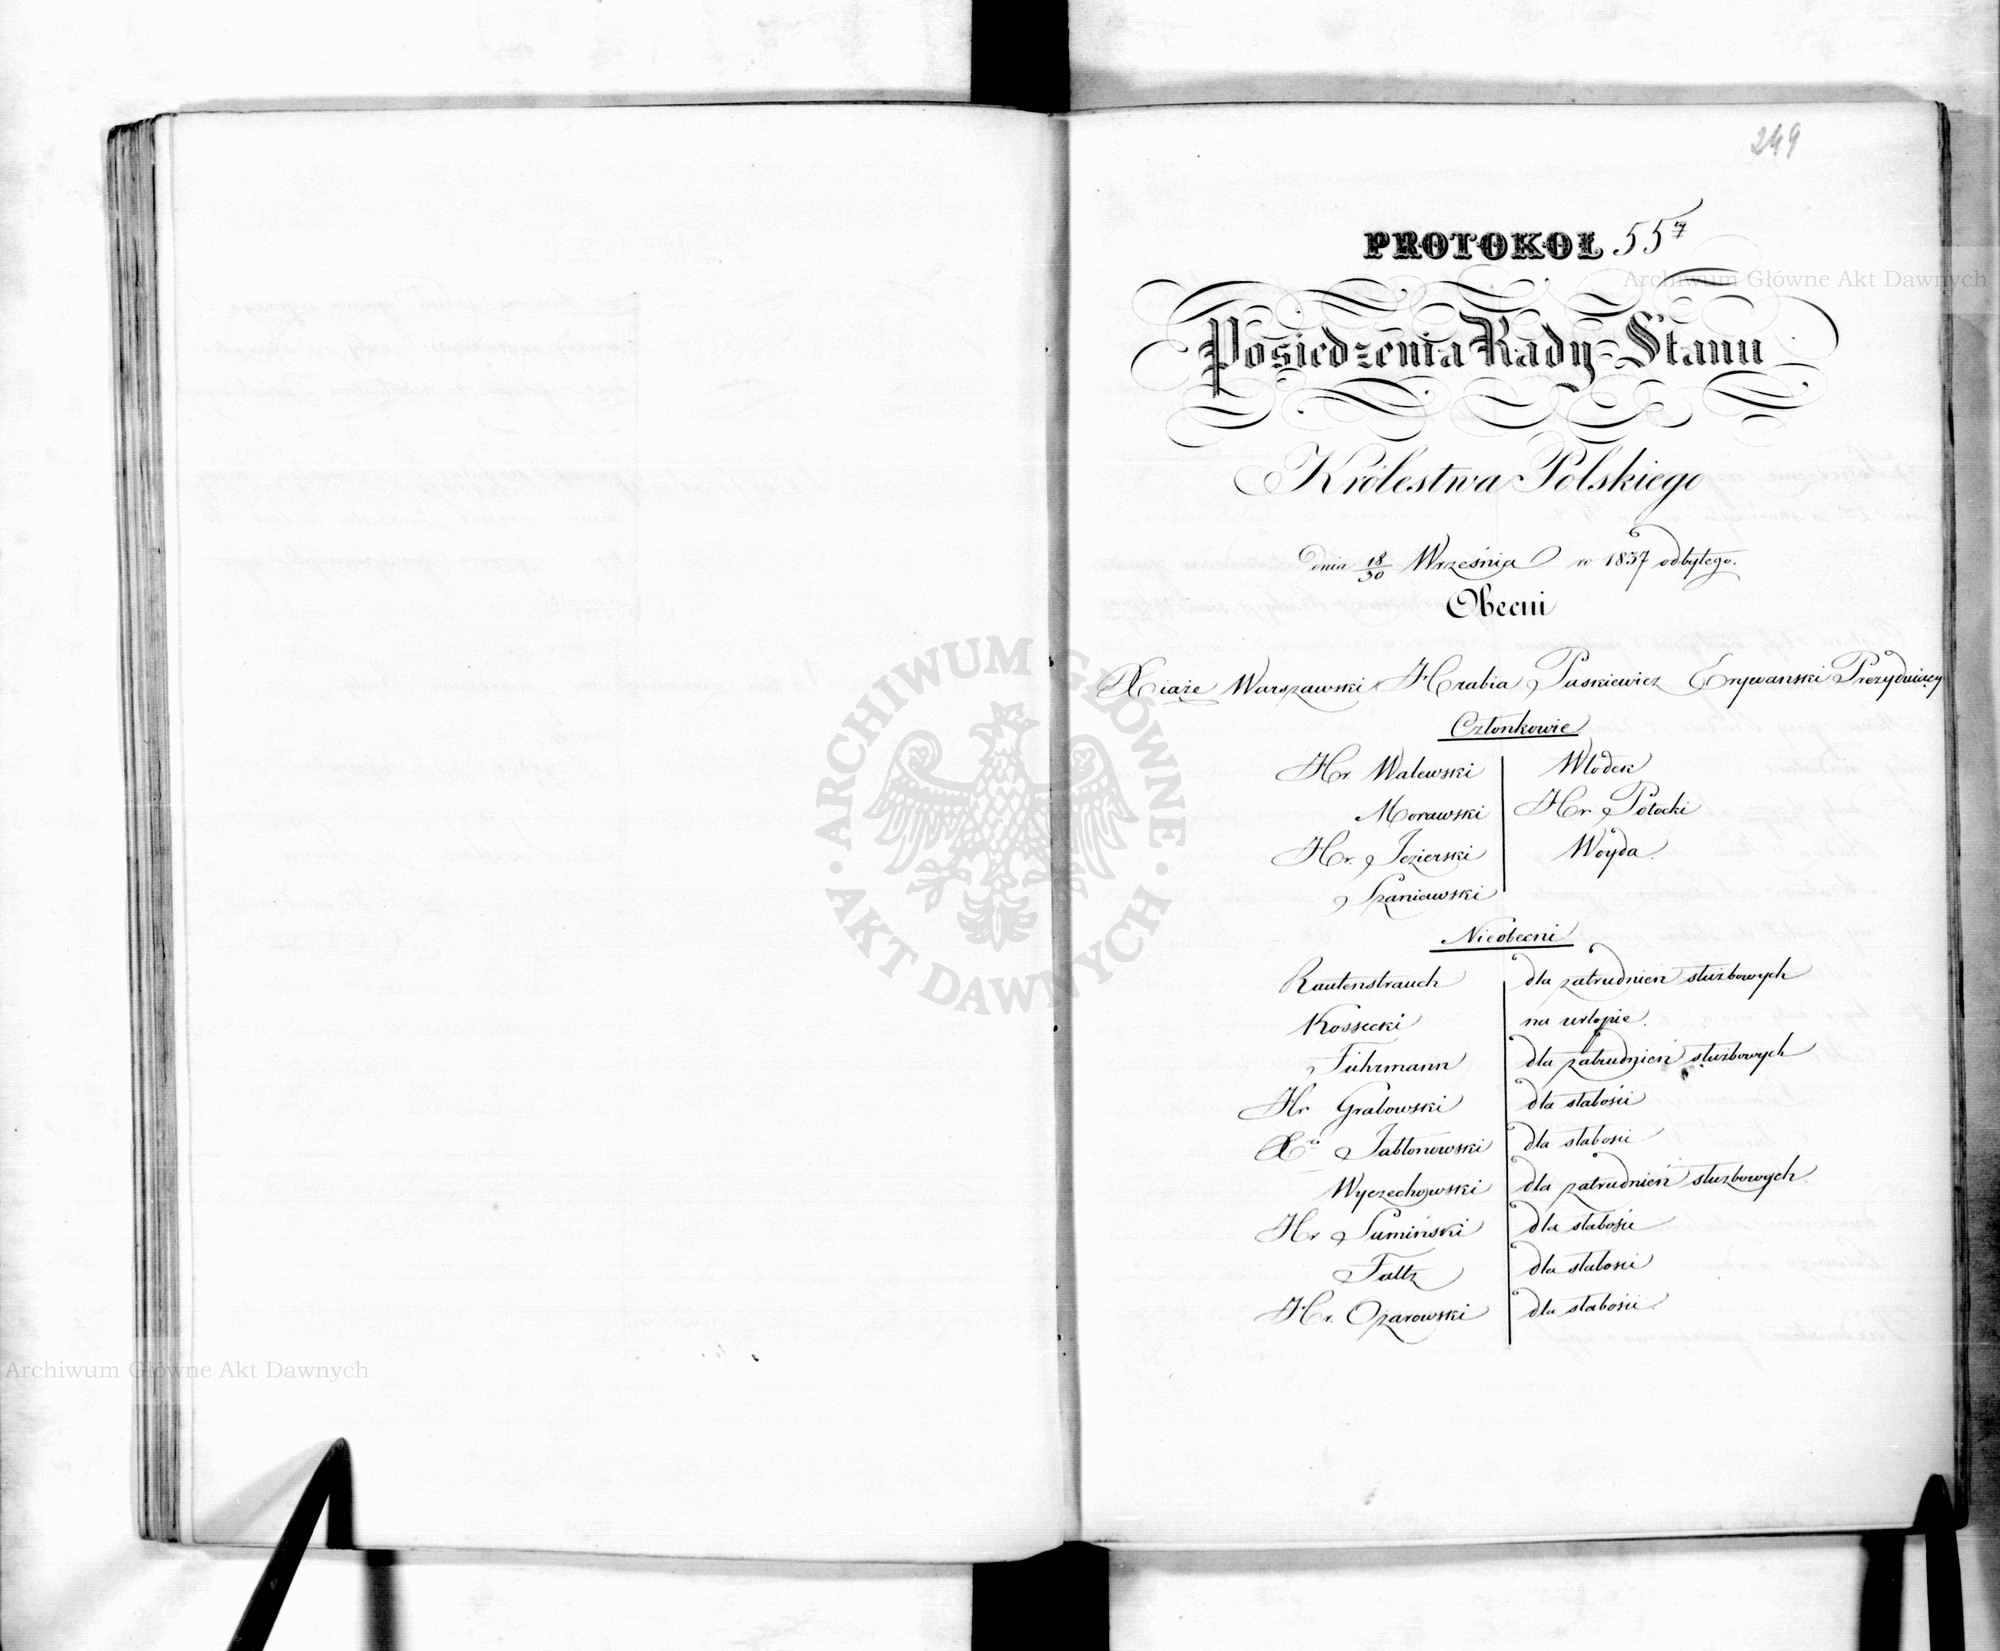 249
PROTOKOŁ 55⁷
Archiwum Główne Akt Dawnych
Posiedzenia Rady Stanu
Królestwa Polskiego
Dnia 18/30 Września r 1837 odbytego.
Obecni
Xiąże Warszawski Hrabia Paskiewicz Erywanski Prezydujący
Członkowie
Hr Walewski
Włodek
Morawski
Hr. Potocki
Hr. Jezierski
Woyda.
Szaniawski
Nieobecni
Rautenstrauch dla zatrudnień służbowych
Kossecki na urlopie.
Fuhrmann dla zatrudnień służbowych
Hr Grabowski dla słabości
X.e Jabłonowski dla słabości
Wyczechowski dla zatrudnień służbowych.
Hr Sumiński dla słabości
Faltz dla słabości
Hr. Ożarowski dla słabości.
ARCHIWUM GŁÓWNE
AKT DAWNYCH
Archiwum Główne Akt Dawnych